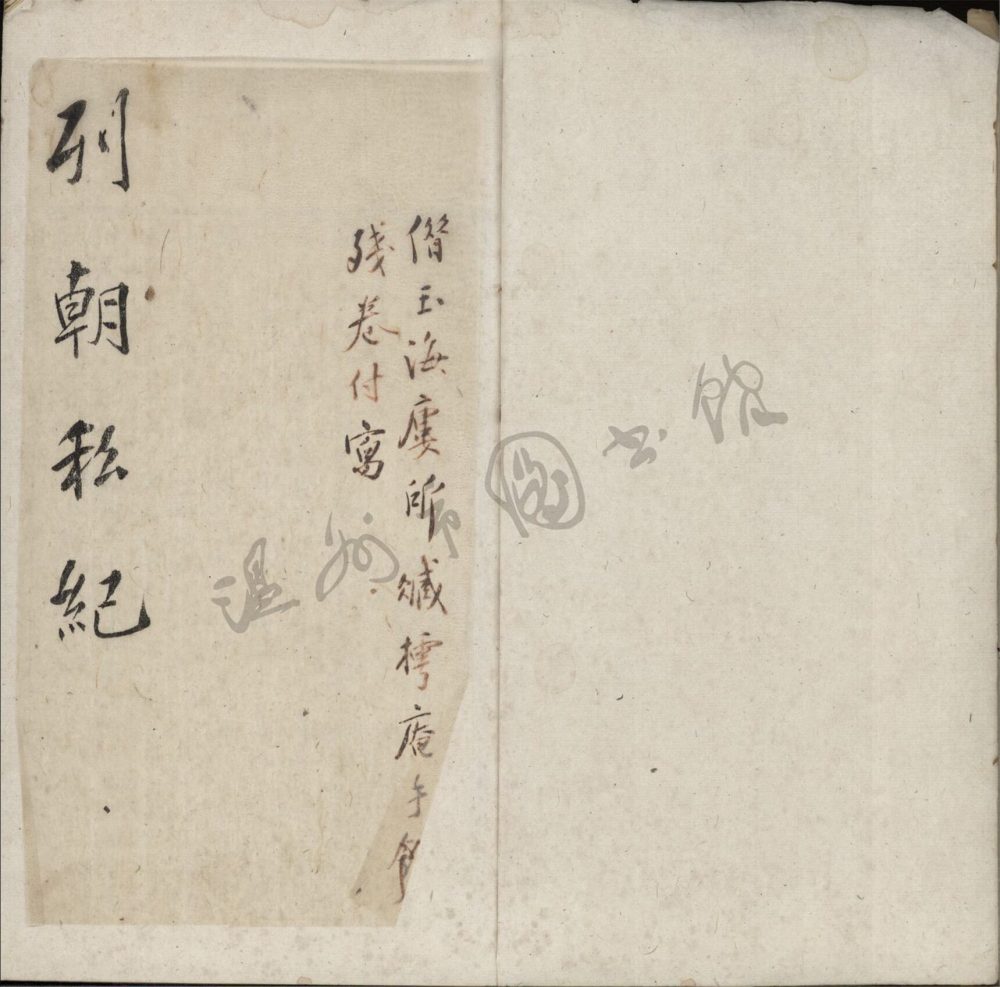 借玉海廔所臧樗庵手
殘卷付寫
列朝私紀
温州市圖书館